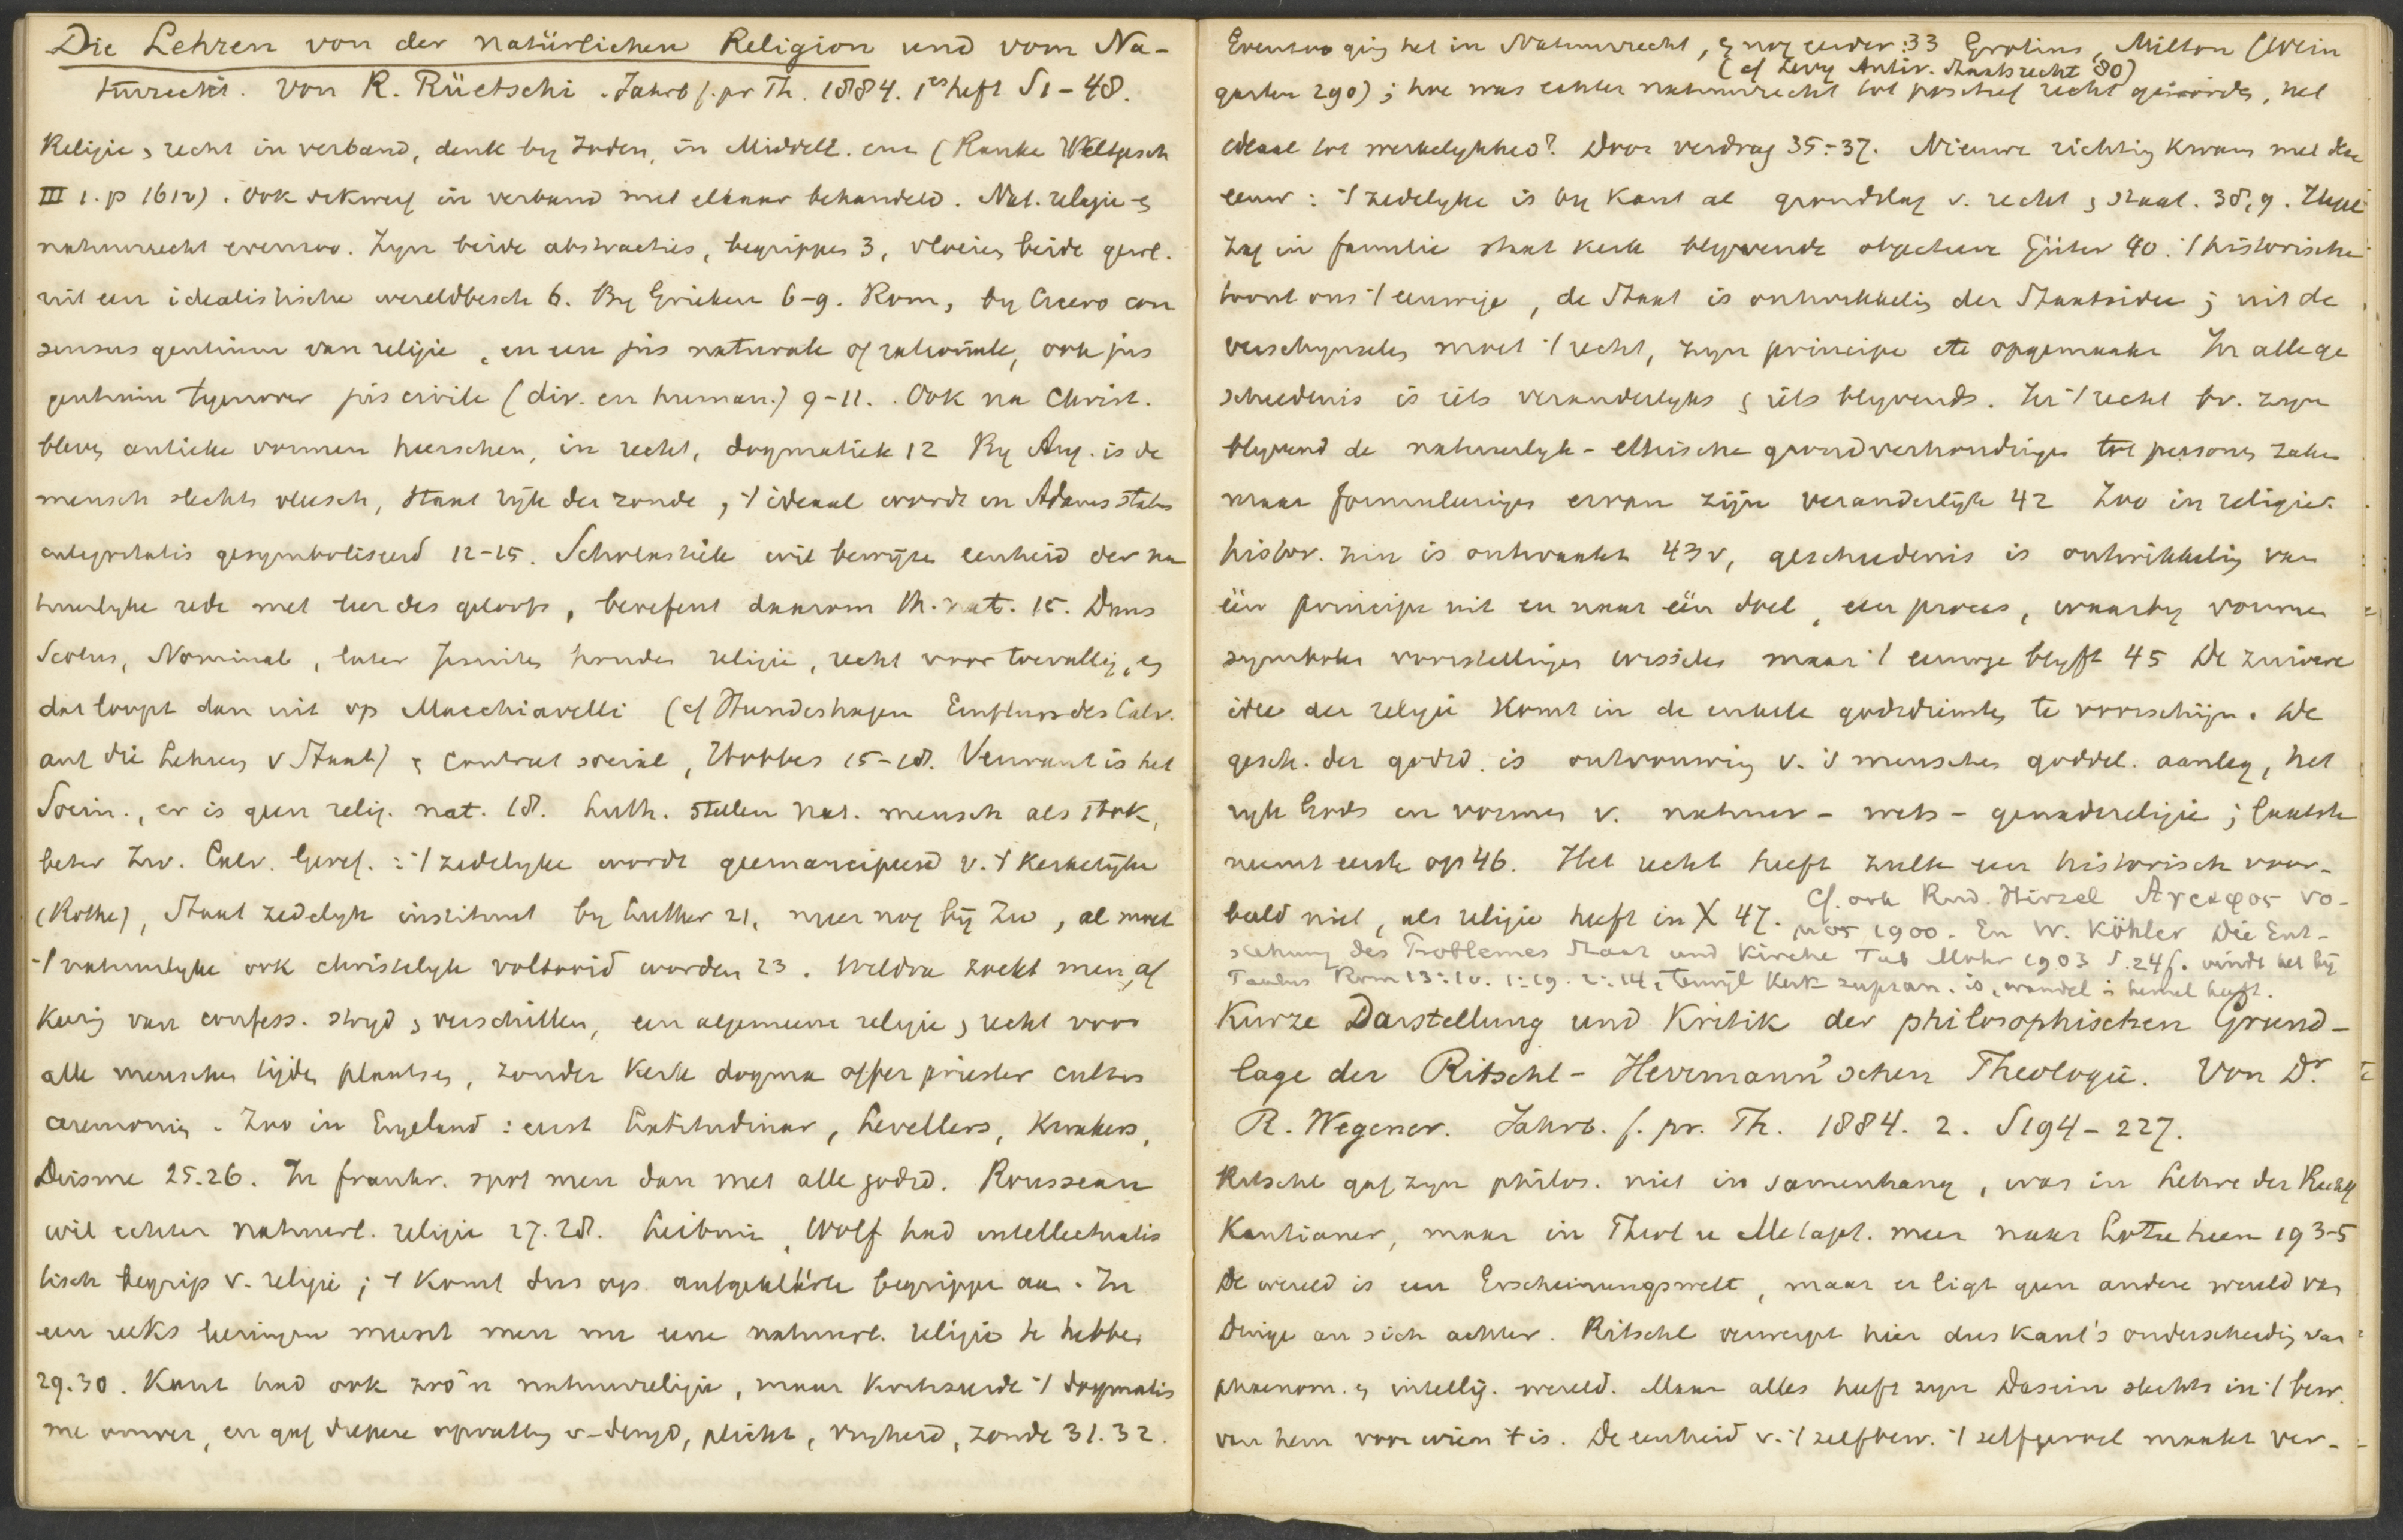 Die Lehren von der natürlichen Religion und vom Na-
turrecht. Von R. Rüetschi. Jahrb f. pr Th. 1884. 1es heft S 1-48.
Religie & recht in verband, denk by Joden, in Middell. enz (Ranke Weltgesch
III 1. p 161v). Ook dikwerf in verband met elkaar behandeld. Nat. religie &
natuurrecht evenzoo. Zyn beide abstracties, begrippen 3, vloeien beide gewl.
uit een idealistische wereldbesch 6. By Grieken 6-9. Rom, by Cicero con
sensus gentium van religie, en een jus naturale of rationale, ook jus
gentium tegenover jus civile (div. en human.) 9-11. Ook na Christ.
bleven antieke vormen heerschen, in recht, dogmatiek 12 By Aug. is de
mensch slechts vleesch, staat rijk der zonde, 't ideaal wordt in Adams status
integritatis gesymboliseerd 12-15. Scholastiek wil bewijzen eenheid der na
tuurlyke rede met leer des geloofs, beoefent daarom th. nat. 15. Duns
Scotus, Nominal., later Jesuiten houden religie, recht voor toevallig, en
dat loopt dan uit op Macchiavelli (cf Hundeshagen Einfluss des Calv.
auf die Lehren v Staat) & Contrat social, Hobbes 15-18. Verwant is het
Socin., er is geen relig. nat. 18. Luth. stellen nat. mensch als stok,
beter Zw. Calv. Geref. : 't zedelyke wordt geemancipeerd v. 't kerkelyke
(Rothe), Staat zedelyk instituut by Luther 21, meer nog bij Zw, al moet
't natuurlyke ook christelyk voltooid worden 23. Weldra zoekt men, af
keerig van confess. stryd & verschillen, een algemeene religie & recht voor
alle menschen tijden plaatsen, zonder kerk dogma offer priester cultus
ceremoniën. Zoo in Engeland : eerst Latitudinar, Levellers, Kwakers,
Deisme 25.26. In frankr. spot men dan met alle godsd. Rousseau
wil echter natuurl. religie 27.28. Leibniz, Wolf had intellectualis
tisch begrip v. religie ; 't komt dus op aufgeklärte begrippen aan. In
een reeks leeringen meent men nu eene natuurl. religie te hebben
29.30. Kant had ook zoo'n natuurreligie, maar kritiseerde 't dogmatis
me ervan, en gaf diepere opvatting v. deugd, plicht, vryheid, zonde 31.32.
Evenzoo ging het in Natuurrecht, & nog eerder : 33 Grotius, Milton (Wein
(cf Levy Antir. Staatsrecht 80)
garten 290) ; hoe was echter natuurrecht tot positief recht geworden, het
ideaal tot werkelykheid? Door verdrag 35-37. Nieuwe richting kwam met deze
eeuw : 't zedelyke is by Kant al grondslag v. recht & staat. 38,9. Hegel
zag in familie staat kerk blyvende objectieve Güter 40. 't historische
toont ons 't eeuwige, de Staat is ontwikkeling der Staatsidee ; uit de
verschynselen moet 't recht, zyn principe etc opgemaakt In alle ge
schiedenis is iets veranderlyks & iets blyvends. In 't recht bv. zyn
blyvend de natuurlyk-ethische grondverhoudingen tot personen zaken
maar formuleeringen ervan zijn veranderlijk 42 Zoo in religie.
histor. zin is ontwaakt 43v, geschiedenis is ontwikkeling van
één principe uit en naar één doel, een proces, waarby vormen
symbolen voorstellingen wisselen maar 't eeuwige blyft 45 De zuivere
idee der religie komt in de enkele godsdiensten te voorschijn. De
gesch. der godsd. is ontvouwing v. 's menschen goddel. aanleg, het
ryk Gods in vormen v. natuur- wets- genadereligie ; laatste
neemt eerste op 46. Het recht heeft zulk een historisch voor-
beeld niet, als religie heeft in X 47. Cf. ook Rud. Hirzel Αγραφος νο-
μος 1900. En W. Köhler Die Ent-
stehung des Problemes Staat und Kirche Tub Mohr 1903 S. 24f. vindt het bij
Paulus Rom 13:10. 1:19. 2:14, terwijl Kerk supran. is, wandel i hemel heeft.
Kurze Darstellung und Kritik der philosophischen Grund-
lage der Ritschl-Herrmann'schen Theologie. Von Dr.
R. Wegener. Jahrb. f. pr. Th. 1884. 2. S 194-227.
Ritschl gaf zyn philos. niet in samenhang, was in Lehre der Rechtf
Kantianer, maar in Theol u Metaph. meer naar Lotze heen 193-5
De wereld is een Erscheinungswelt, maar er ligt geen andere wereld van
Dinge an sich achter. Ritschl verwerpt hier dus Kant's onderscheiding van
phaenom. & intellig. wereld. Maar alles heeft zyn Dasein slechts in 't bew.
van hem voor wien 't is. De eenheid v. 't zelfbew. 't zelfgevoel maakt ver-